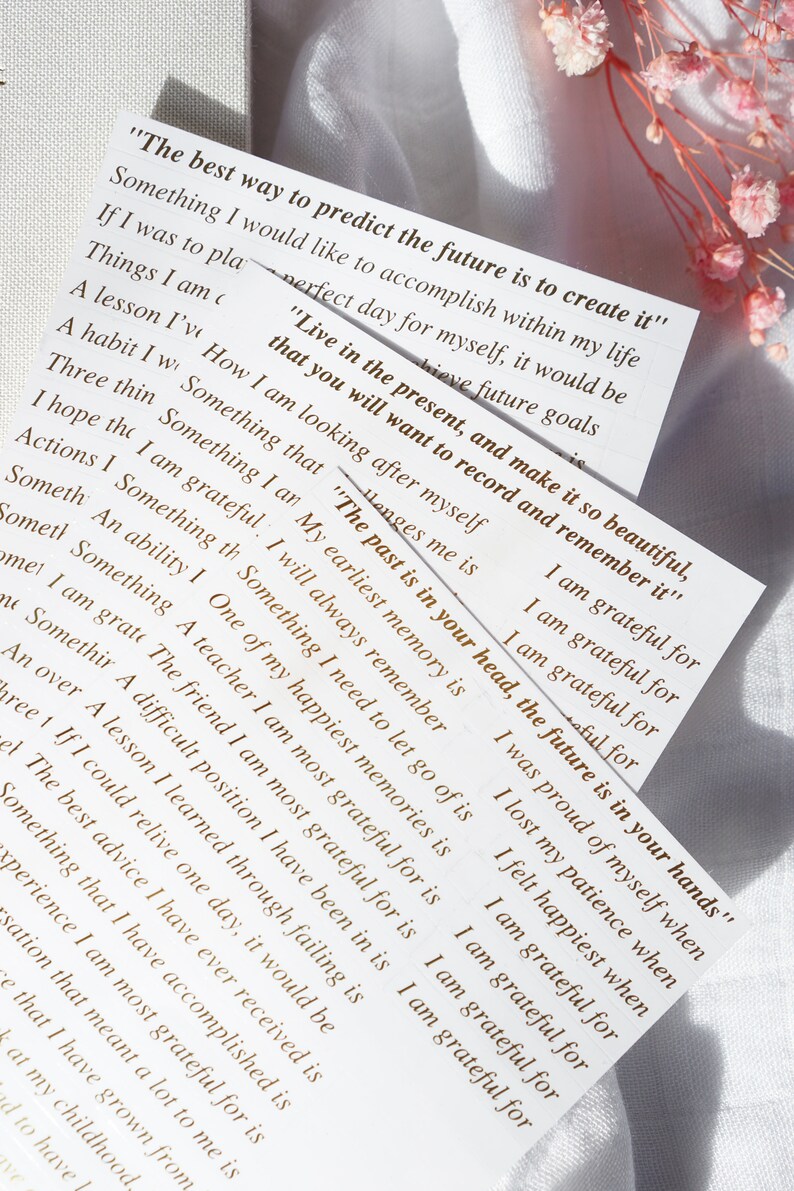 "The best way to predict the future is to create it"
Something I would like to accomplish within my life
If I was to plan a perfect day for myself, it would be
Things I am
achieve future goals
A lesson I've
is
A habit I
Three
I hope
Actions I
"Live in the present, and make it so beautiful,
that you will want to record and remember it"
How I am looking after myself
Something that challenges me is
Something I am
I am grateful
Something
An ability I
Something
I am
An
I am grateful for
I am grateful for
I am grateful for
grateful for
"The past is in your head, the future is in your hands"
My earliest memory is
I will always remember
Something I need to let go of is
One of my happiest memories is
A teacher I am most grateful for is
The friend I am most grateful for is
A difficult position I have been in is
A lesson I learned through failing is
If I could relive one day, it would be
The best advice I have ever received is
Something that I have accomplished is
experience I am most grateful for is
that meant a lot to me is
that I have grown from
at my childhood,
to have
I was proud of myself when
I lost my patience when
I felt happiest when
I am grateful for
I am grateful for
I am grateful for
I am grateful for